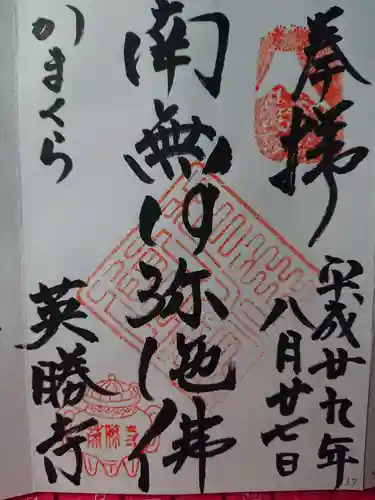 奉拝
平成廿九年
八月廿七日
南無阿弥陀佛
かまくら
英勝寺
37